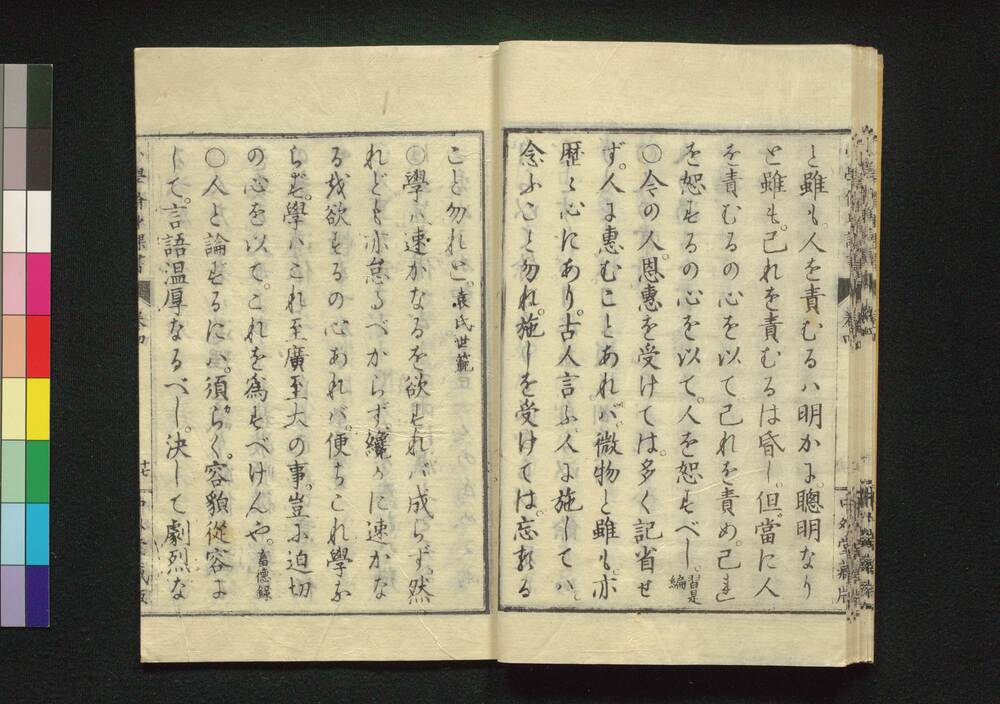 と雖も、人を責むるハ明かに、聰明なり
と雖も、己れを責むるは昏し、但當に人
を責むるの心を以て己れを責め、己れ
を恕するの心を以て、人を恕すべし。習是編
〇今の人、恩惠を受けては、多く記省せ
ず。人に惠むことあれバ、微物と雖も、亦
歴々心にあり。古人言ふ、人に施してハ、
念ふこと勿れ。施しを受けては、忘るゝ
こと勿れと。袁氏世範
〇學ハ速かなるを欲すれバ成らず、然
れども亦怠るべからず、纔かに速かな
る我欲するの心あれバ、便ちこれ學な
らず。學ハこれ至廣至大の事、豈に迫切
の心を以て、これを爲すべけんや。畜德錄
〇人と論ずるにハ、須らく、容貌從容に
して、言語溫厚なるべし。決して劇烈な
卷四